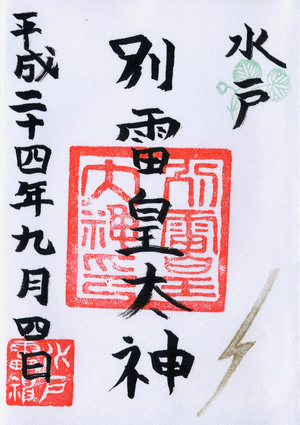 水戸
別雷皇大神
平成二十四年九月四日
別雷皇
大神印
水戸
雷神